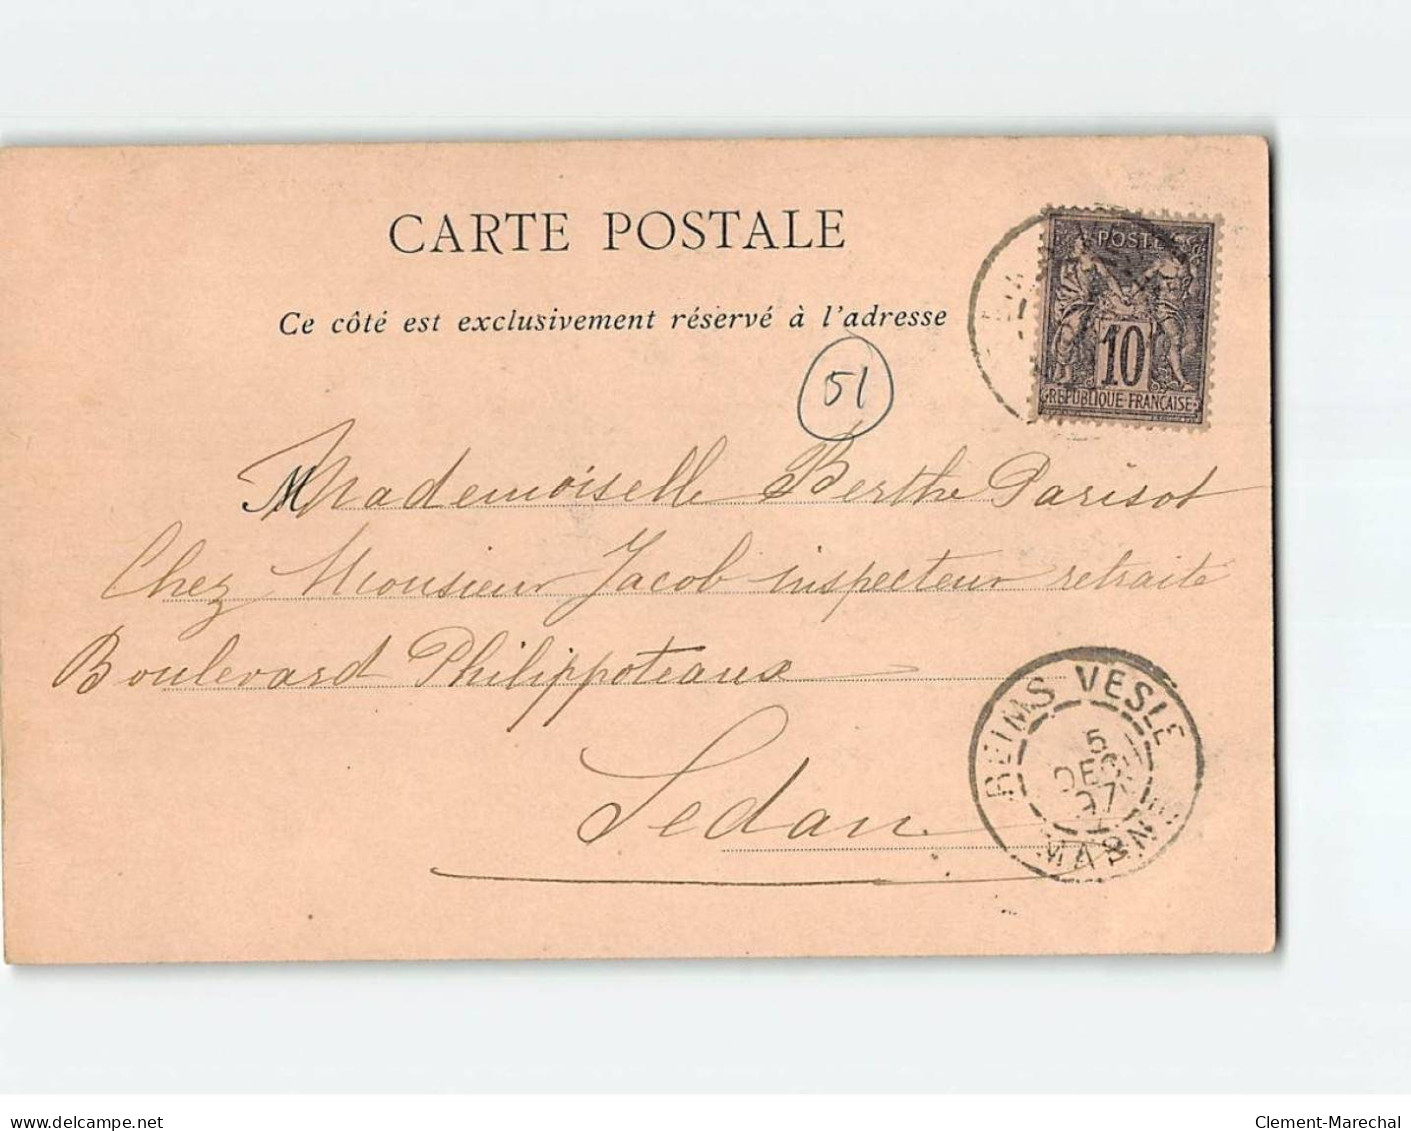 CARTE POSTALE
Ce côté est exclusivement réservé à l'adresse
POSTE
10
REPUBLIQUE FRANÇAISE
51
Mademoiselle Berthe Parisot
Chez Monsieur Jacob inspecteur retraité
Boulevard Philippoteaux
Sedan
REIMS VESLE
5
DEC
97
MARNE
www.delcampe.net
Clement-Marechal